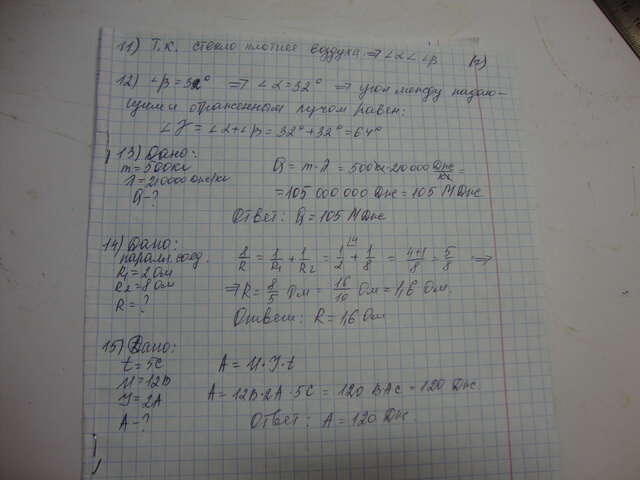 11) Т.к. стекло плотнее воздуха ⇒ ∠α ∠ ∠β
12) ∠β = 32° ⇒ ∠α = 32° ⇒ угол между падаю-
щим и отраженном лучом равен:
∠γ = ∠α + ∠β = 32° + 32° = 64°
13) Дано:
m = 500кг
λ = 210000 Дж/кг
Q - ?
Q = m · λ = 500кг · 210000 Дж/кг =
= 105 000 000 Дж = 105 МДж
Ответ: Q = 105 МДж
14) Дано:
паралл. соед.
R1 = 2 Ом
R2 = 8 Ом
R = ?
1/R = 1/R1 + 1/R2 = 1/2 + 1/8 = 4+1/8 = 5/8 ⇒
⇒ R = 8/5 Ом = 16/10 Ом = 1,6 Ом.
Ответ: R = 1,6 Ом
15) Дано:
t = 5С
U = 12В
I = 2А
A - ?
A = U · I · t
A = 12В · 2А · 5С = 120 ВАС = 120 Дж.
Ответ: A = 120 Дж.